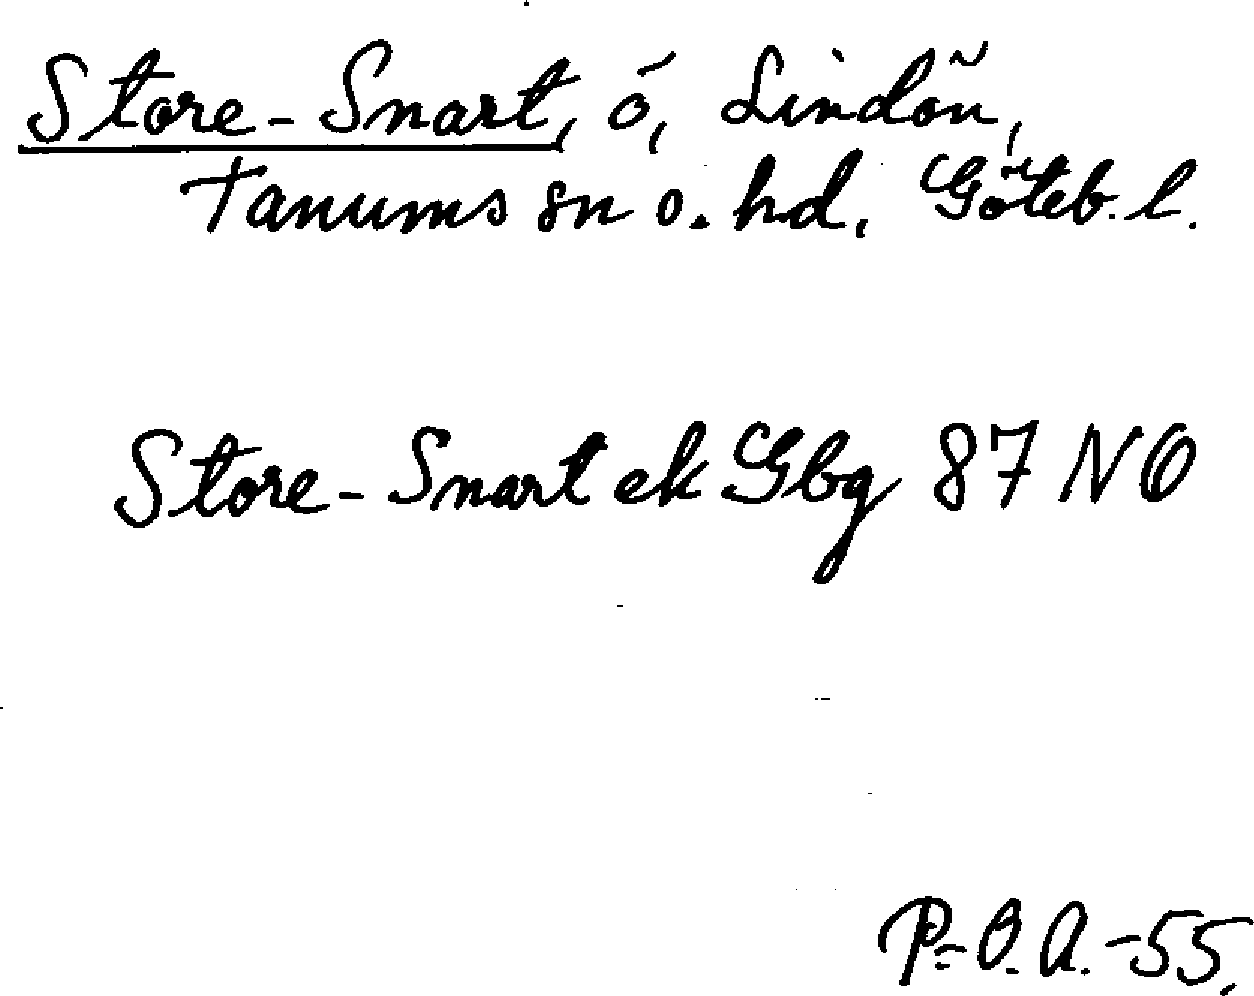 Store-Snart, ö, Lindön,
Tanums sn o. hd, Göteb. l.
Store-Snart ek Gbg 87 NO
P.-O. A. -55.